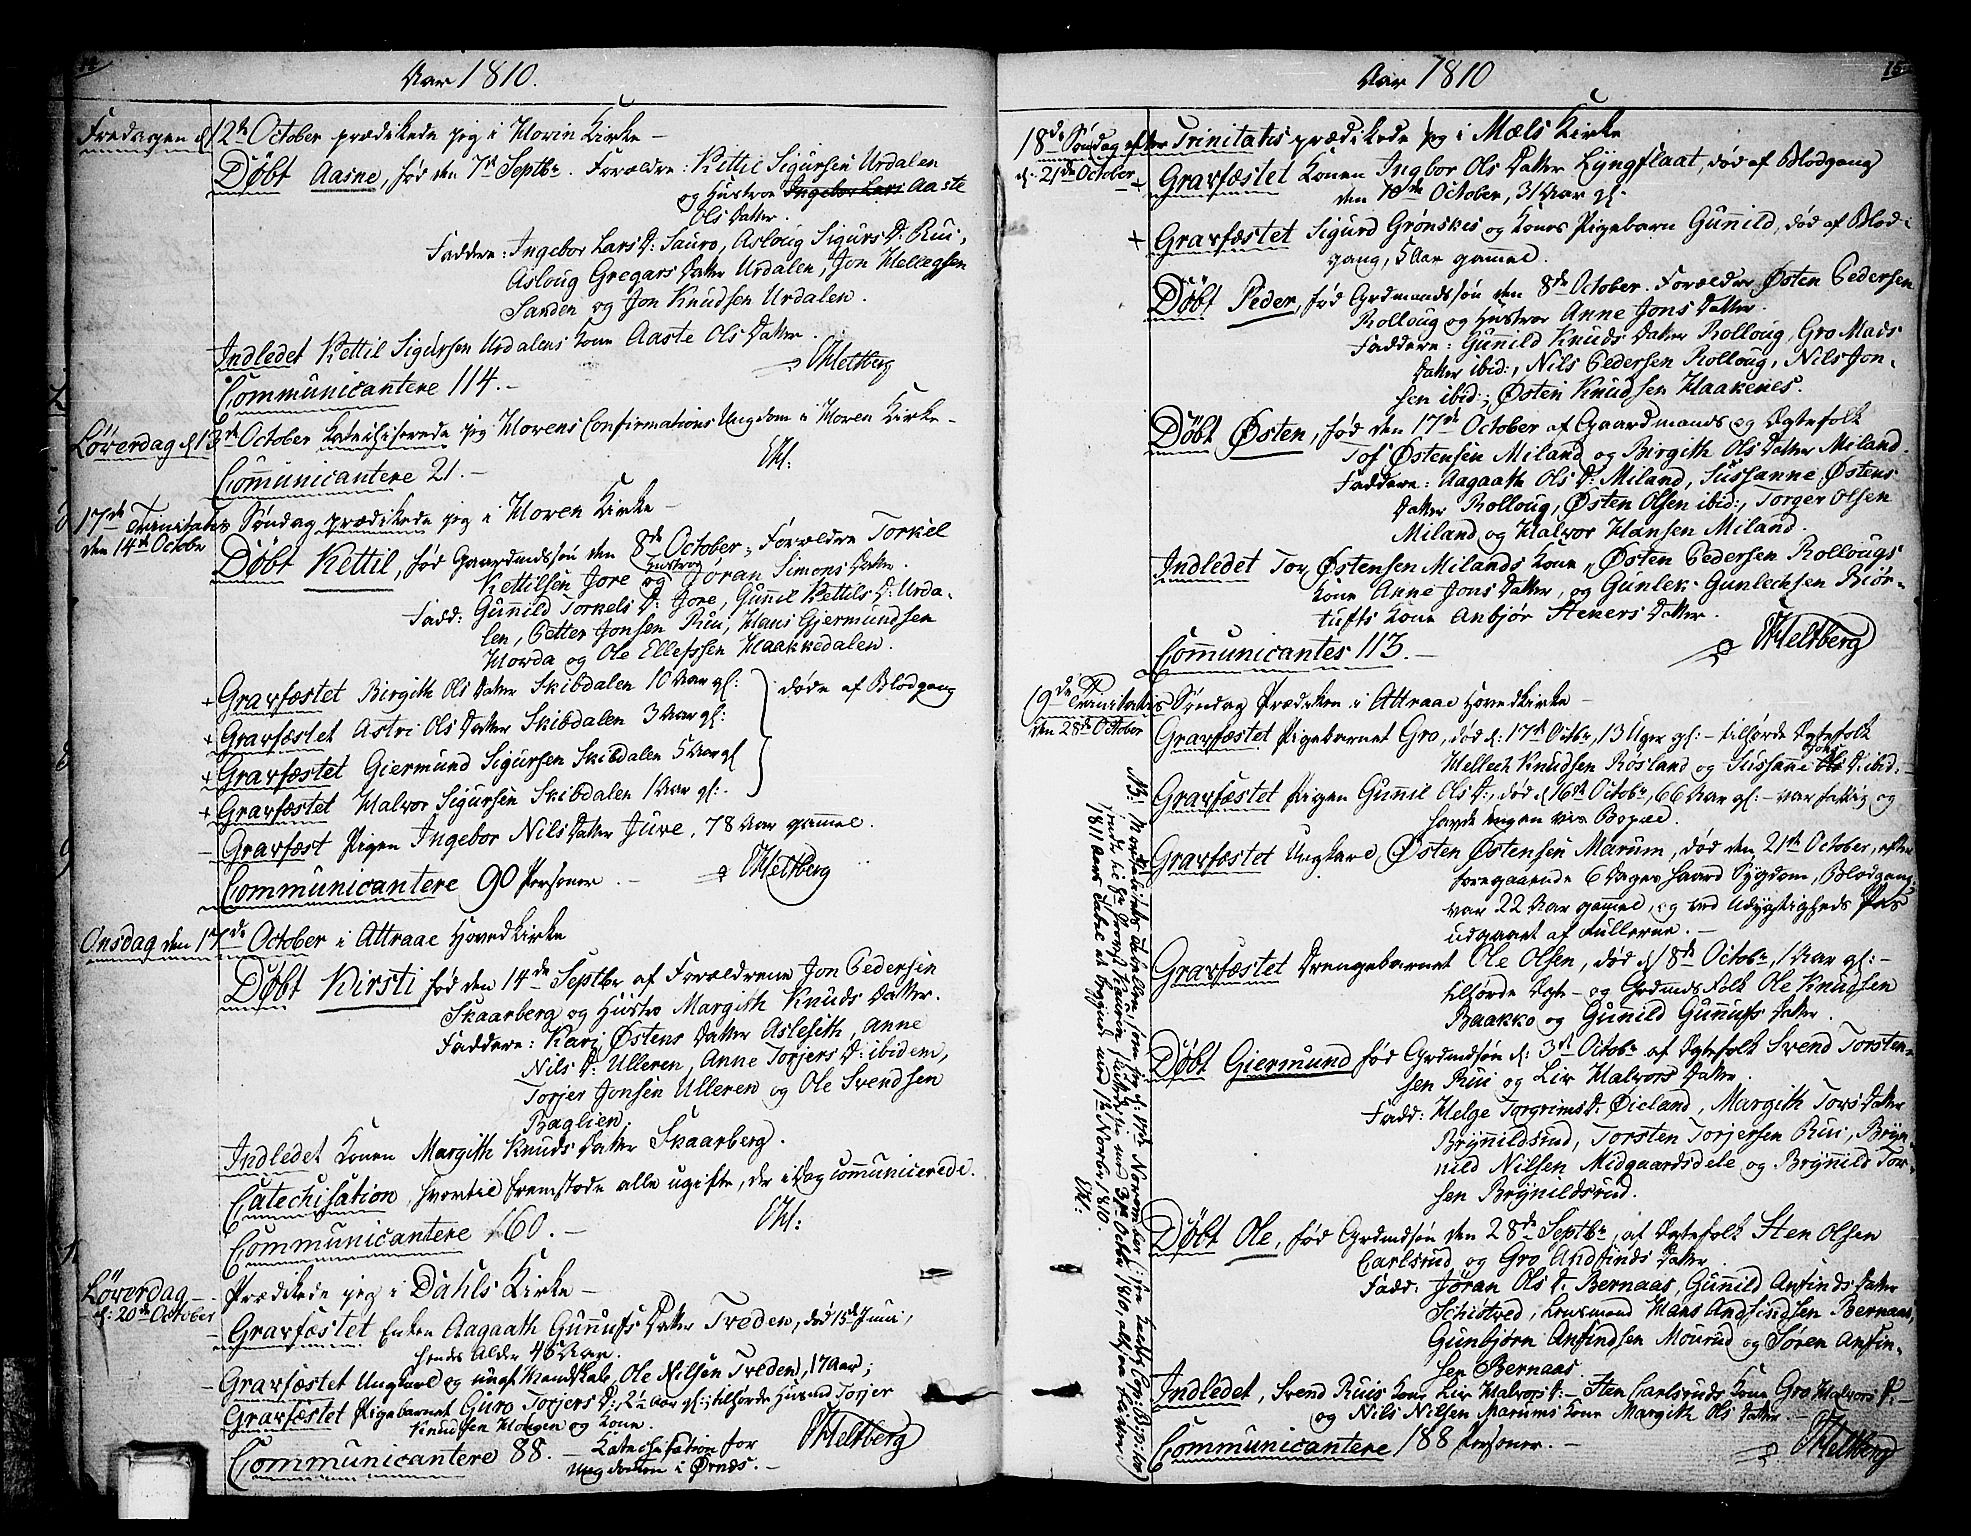 14
Aar 1810.
Fredagen d. 12te October prædikede jeg i Hovin Kirke –
Døbt Aasne, fød den 7de Septbr. Forældre: Kettil Sigursen Urdalen
og Hustroe Ingebor Lars Aaste
Ols Datter.
Faddere: Ingebor Lars D: Sauro, Asloug Sigurs D: Rui,
Asloug Gregars Datter Urdalen, Jon Helgesen
Sanden og Jon Knudsen Urdalen.
Indledet Kettil Sigursen Urdalens Kone Aaste Ols Datter.
Heltberg
Communicantere 114. –
Löverdag d. 13de October Katechiserede jeg Hovens Confirmations Ungdom i Hoven Kirke –
Hl:
Communicantere 21. –
17de Trinitatis Søndag prædikede jeg i Hoven Kirke –
den 14de Octobr
Døbt Kettil, fød Gaardmdssön den 8de October, Forældre Torkel
Kettilsen Jore og Hustroe Jøran Simons Datter.
Fadd: Gunnild Torkels D: Jore, Gunnil Kettils D: Urda-
len, Petter Jonsen Rui, Hans Gjermundsen
Hovda og Ole Ellefssen Haakkedalen.
+ Gravfæstet Birgith Ols Datter Skibdalen 10 Aar gl: døde af Blodgang
+ Gravfæstet Astri Ols Datter Skibdalen 3 Aar gl:
+ Gravfæstet Giermund Sigursen Skibdalen 5 Aar gl
+ Gravfæstet Halvor Sigursen Skibdalen 1 Aar gl:.
– Gravfæst Pigen Ingebor Nils Datter Juve, 78 Aar gammel.
Communicantere 90 Personer. – Heltberg
Onsdag den 17de October i Attraae Hovedkirke
Døbt Kirsti fød den 14de Septbr af Forældrene Jon Pedersen
Skaarberg og Hustro Margith Knuds Datter.
Faddere: Kari Østens Datter Aslesith, Anne
Nils D: Ulleren, Anne Torjers D: ibidem,
Torjer Jonsen Ulleren og Ole Svendsen
Baglien.
Indledet Konen Margith Knuds Datter Skaarberg.
Catechisation, hvortil fremstode alle ugifte, der i Dag communicerede.
Hl:
Communicantere 160. –
Löverdag – Prædikede jeg i Dahls Kirke –
d: 20de October
– Gravfæstet Enken Aagaath Gunnufs Datter Treden, død 15de Juni,
hendes Alder 46 Aar.
– Gravfæstet Ungkarl og ungt Mandskab, Ole Nilsen Treden, 17 Aar;
– Gravfæstet Pigebarnet Guro Torjers D:, 2½ Aar gl:; tilhørde Husmd Torjer
Knudsen Haugen og Kone.
Communicantere 88. – Katechisation for Heltberg
Ungdommen i Ørnæs. –
15
Aar 1810
18de Søndag efter Trinitatis prædikede jeg i Mæls Kirke
d. 21de October
+ Gravfæstet Konen Ingbor Ols Datter Lyngflaat, død af Blodgang
den 10de October, 31 Aar gl.
+ Gravfæstet Sigurd Grønskis og Kones Pigebarn Gunnild, død af Blod-
gang, 5 Aar gammel.
Døbt Peder, fød Grdmandssön den 8de October. Forældre Østen Pedersen
Rolloug og Hustroe Anne Jons Datter.
Faddere: Gunnild Knuds Datter Rolloug, Gro Mads
Datter ibid:, Nils Pedersen Rolloug, Nils Jon-
sen ibid:, Østen Knudsen Haakenes.
Døbt Østen, fød den 17de October af Gaardmands og Ægtefolk
Tof Østensen Miland og Birgith Ols Datter Miland.
Faddere: Aagaath Ols D: Miland, Sussanne Østens
Datter Rolloug, Østen Olsen ibid:, Torger Olsen
Miland og Halvor Hansen Miland.
Indledet Tov Østensen Milands Kone, Østen Pedersen Rollougs
Kone Anne Jons Datter, og Gunlek Gunlechsen Biør-
tufts Kone Anbjør Steners Datter.
Heltberg
Communicantes 113. –
19de Trinitatis Søndag Prædiken i Attraae Hovedkirke –
den 28de October
Gravfæstet Pigebarnet Gro, død d: 17de Octbr, 13 Uger gl: – tilhørde Ægtefolk
Hellech Knudsen Rosland og Sussanne D: ibid: –
Gravfæstet Pigen Gunnil Ols D:, død d 16de Octobr, 66 Aar gl: – var fattig og
havde ingen vis Bopæl.
Gravfæstet Ungkarl Østen Østensen Marum, død den 21de October, efter
foregaaende 6 Dages haard Sygdom, Blodgang,
var 22 Aar gammel, og ved Udygtigheds Pas
udgaaet af Rullerne. –
Gravfæstet Drengebarnet Ole Olsen, død d 18de Octobr, 1 Aar gl: –
tilhørde Ægte- og Grdmds Folk Ole Knudsen
Baakko og Gunnild Gunnufs Datter.
Døbt Giermund fød Grdmdsön d: 3de Octobr af Ægtefolk Svend Torsten-
sen Rui og Liv Halvors Datter.
Fadd: Helge Torgrims D: Øieland, Margith Tors Datter
Brynnildsrud, Torsten Torjersen Rui, Bryn-
nild Nilsen Midgaardsdele og Brynnild Tor-
sen Brynildsrud.
Døbt Ole, fød Grdmdsön den 28de Septbr, af Ægtefolk Sten Olsen
Carlsrud og Gro Andfinds Datter
Fadd: Jøran Ols D: Bernaas, Gunnild Anfinds Datter
Schistved, Lensmand Hans Andfindsen Bernaas,
Gunbjørn Anfindsen Mourud og Søren Anfin-
sen Bernaas.
Indledet, Svend Ruis Kone Liv Halvors D: – Sten Carlsruds Kone Gro Halvors D: –
og Nils Nilsen Marums Kone Margith Ols Datter. –
Communicantere 188 Personer. – Heltberg
NB: Mortalitets Tabellen, som jeg d: 1ste November
1811 Aars Tabel at begynde med 1ste Novbr 1810.
Hl: